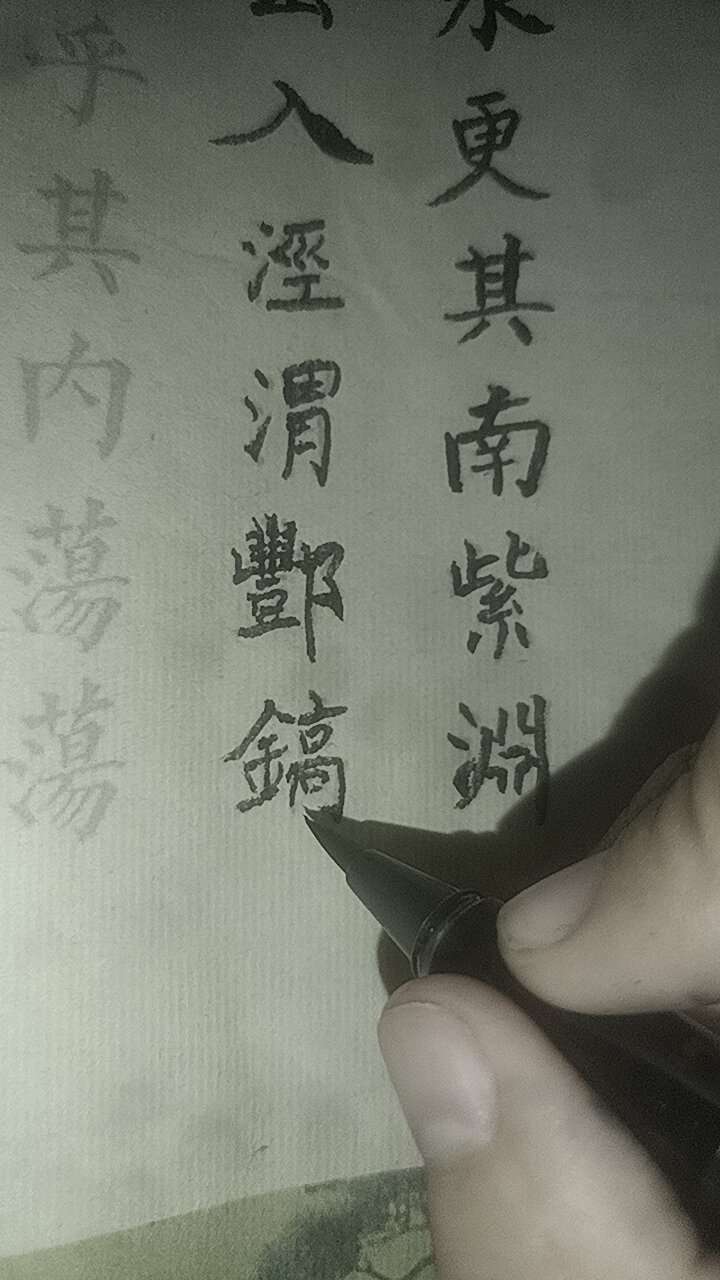 水更其南紫淵
出入涇渭酆鎬
乎其內蕩蕩